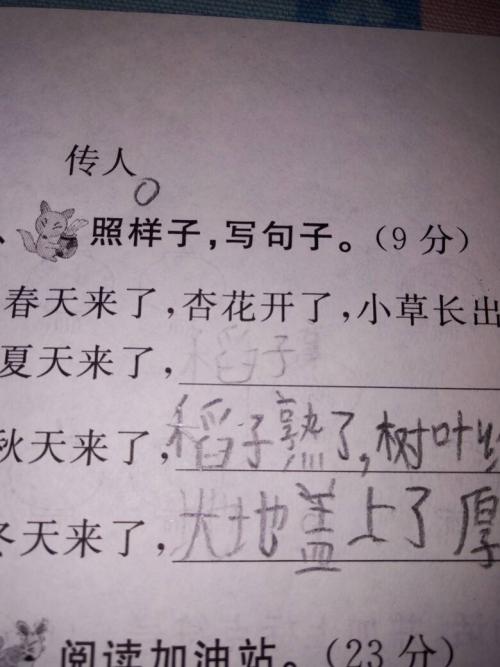 传人。
照样子,写句子。(9分)
春天来了,杏花开了,小草长出
夏天来了,稻子
秋天来了,稻子熟了,树叶
冬天来了,大地盖上了厚
阅读加油站。(23分)